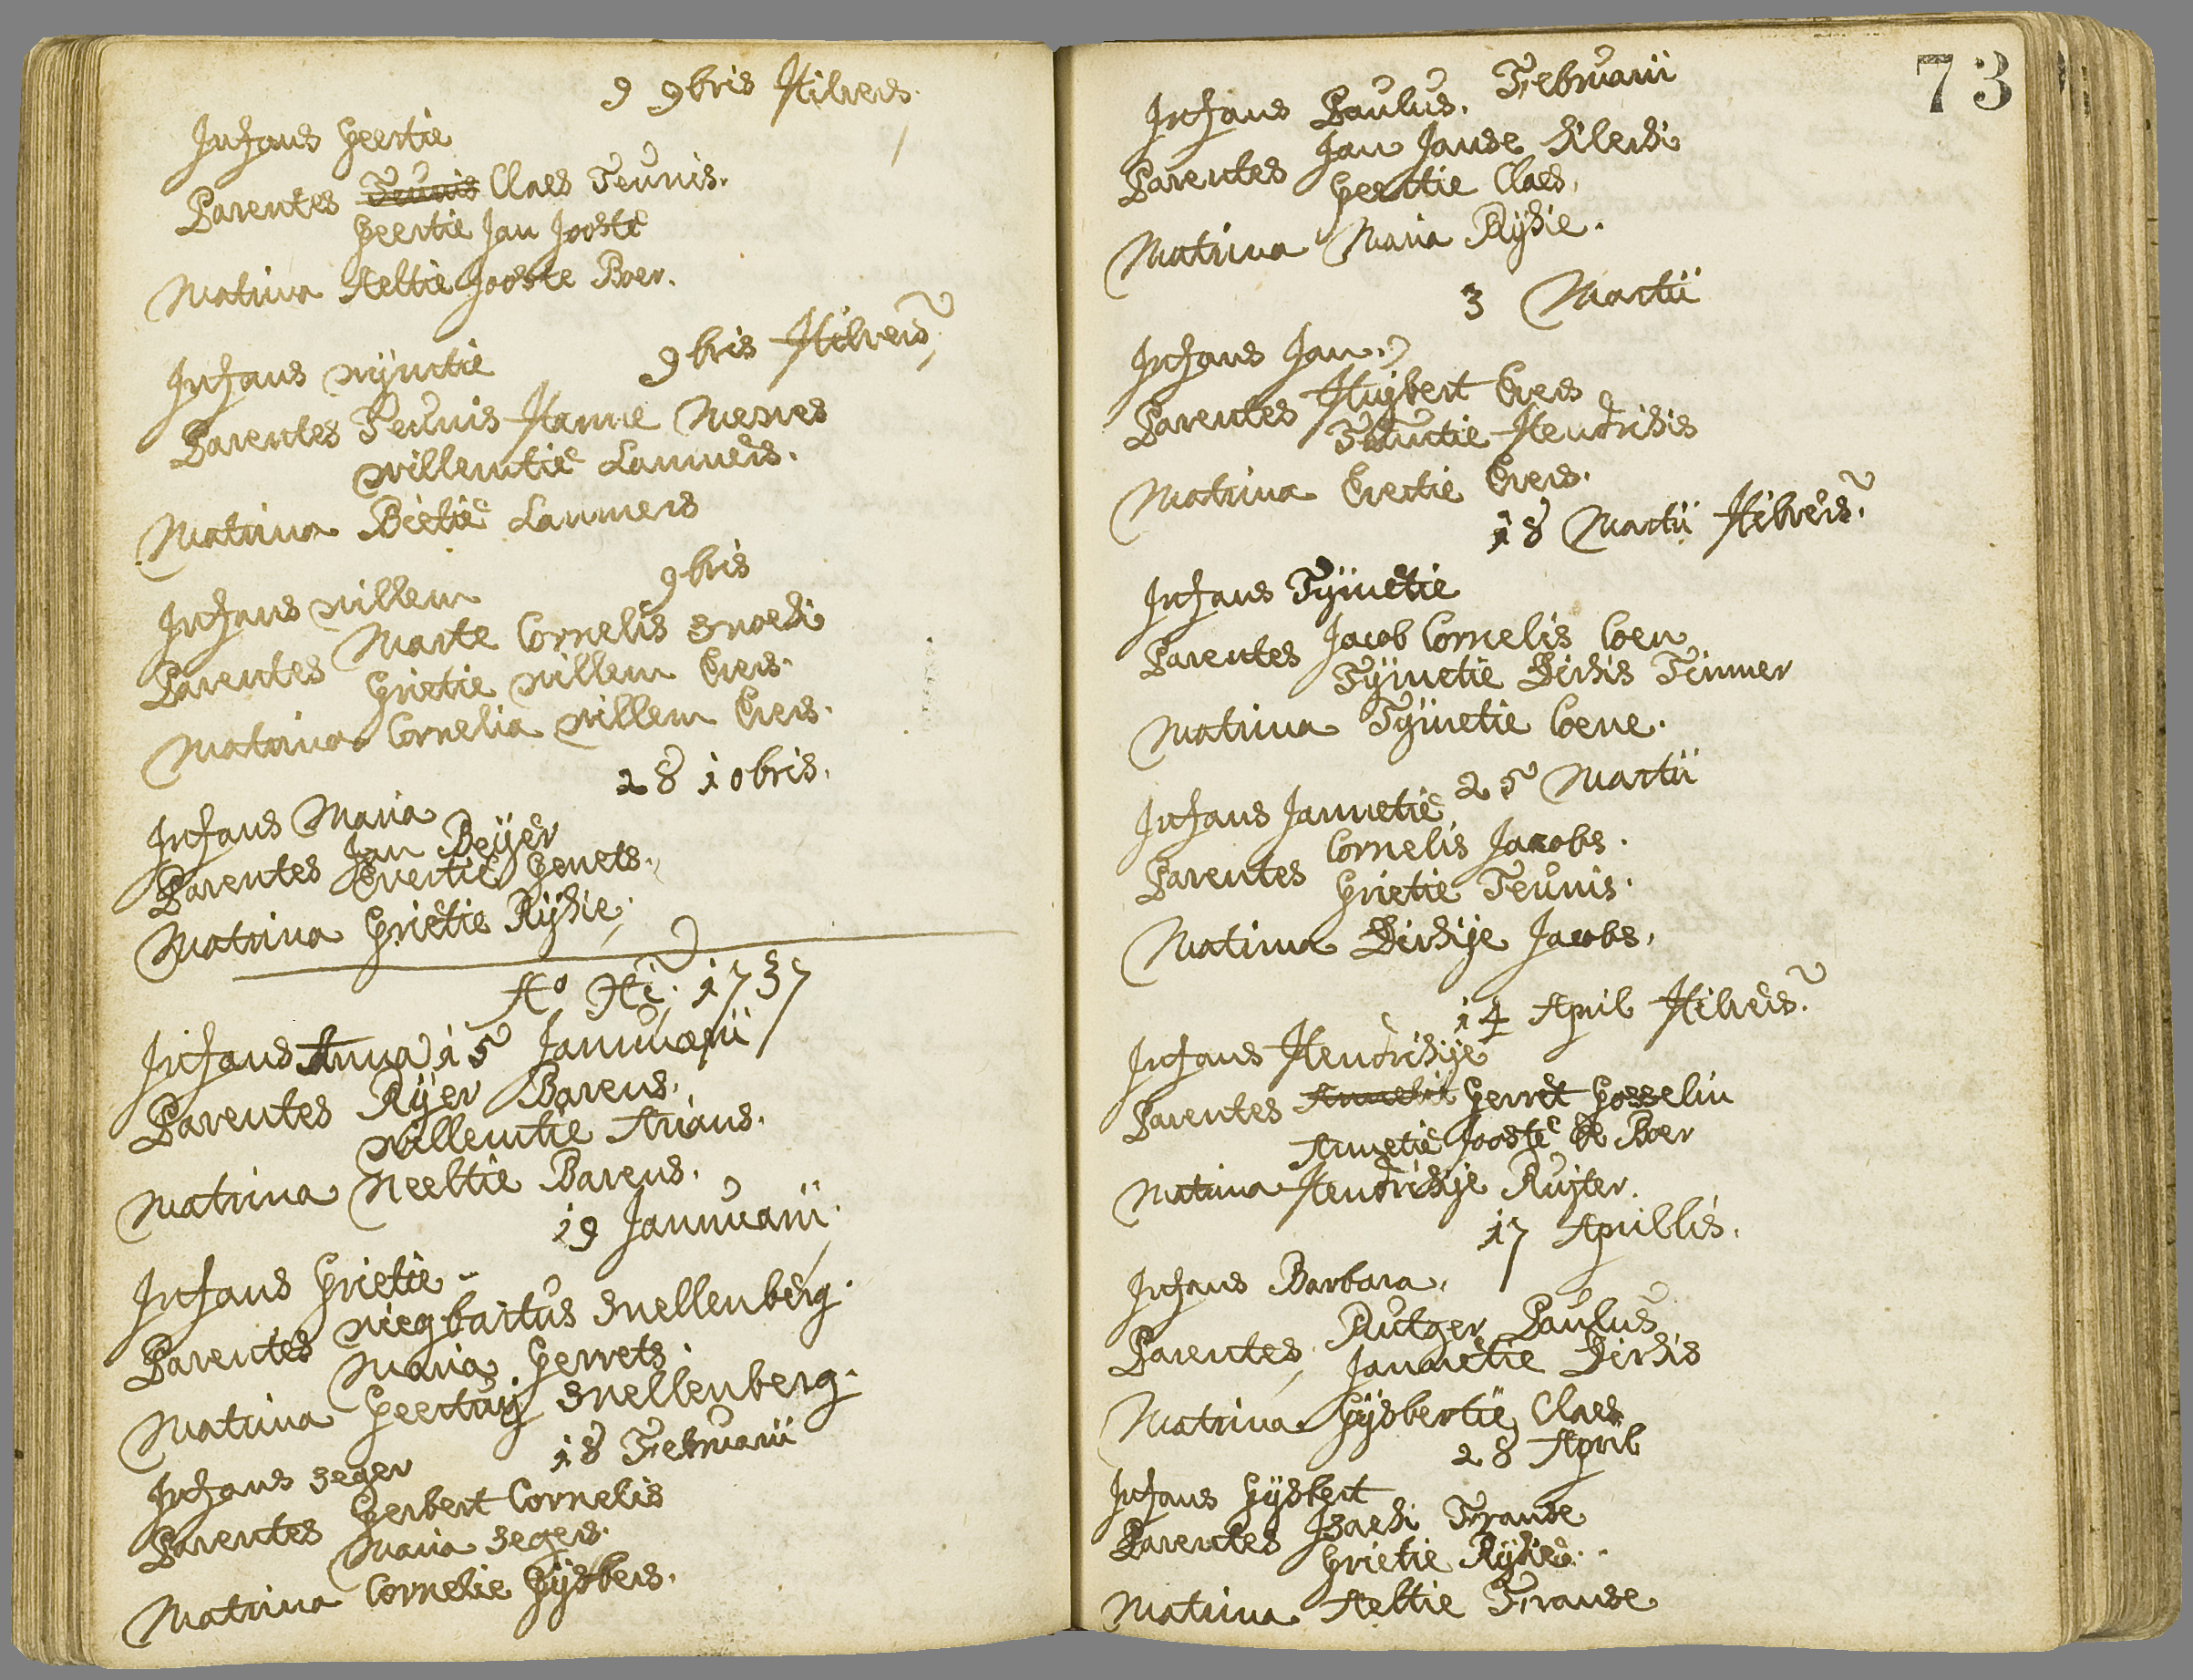 9 9bris Hilvers.
Infans Geertie
Parentes Teunis Claes Teunis.
Geertie Jan Jooste
Matrina Aeltie Jooste Boer.
9bris Hilvers
Infans Wijntie
Parentes Teunis Harme Mesves
Willemtie Lammers.
Matrina Bietie Lammers
9bris
Infans Willem
Parentes Marte Cornelis Snoek
Grietie Willem Evers.
Matrina Cornelia Willem Evers.
28 10bris.
Infans Maria
Jan Beijer
Parentes Evertie Gerrets.
Matrina Grietie Rijkie.
Ao 1737
Infans Anna 15 Januuarii
Parentes Rijer Barens.
Willemtie Arians.
Matrina Neeltie Barens.
19 Januuarii.
Infans Grietie
Parentes Wiegbartus Snellenberg.
Maria Gerrets.
Matrina Geertuij Snellenberg.
18 Februarii
Infans Seger
Parentes Gerbert Cornelis
Maria Segers.
Matrina Cornelie Gijsbers.
73
Februarii
Infans Paulus.
Parentes Jan Janse Klerk
Geertie Claes.
Matrina Maria Rijkie.
3 Martii
Infans Jan.
Parentes Huijbert Evers
Hendrikis
Matrina Evertie Evers.
18 Martii Hilvers.
Infans Tijmetie
Parentes Jacob Cornelis Coen
Tijmetie Dirkis Timmer
Matrina Tijmetie Coene.
25 Martii
Infans Jannetie
Cornelis Jacobs.
Parentes Grietie Teunis.
Matrina Dirkije Jacobs.
14 April Hilvers.
Infans Hendrikije
Parentes Annetie Gerret Gosselin
Annetie Jooste de Boer
Matrina Hendrikije Ruijter.
17 Aprillis.
Infans Barbara.
Parentes Rutger Paulus
Jannetie Dirkis
Matrina Gijsbertie Claes
28 April
Infans Gijsbert
Parentes Isaek Franse
Grietie Rijkies.
Matrina Aeltie Franse